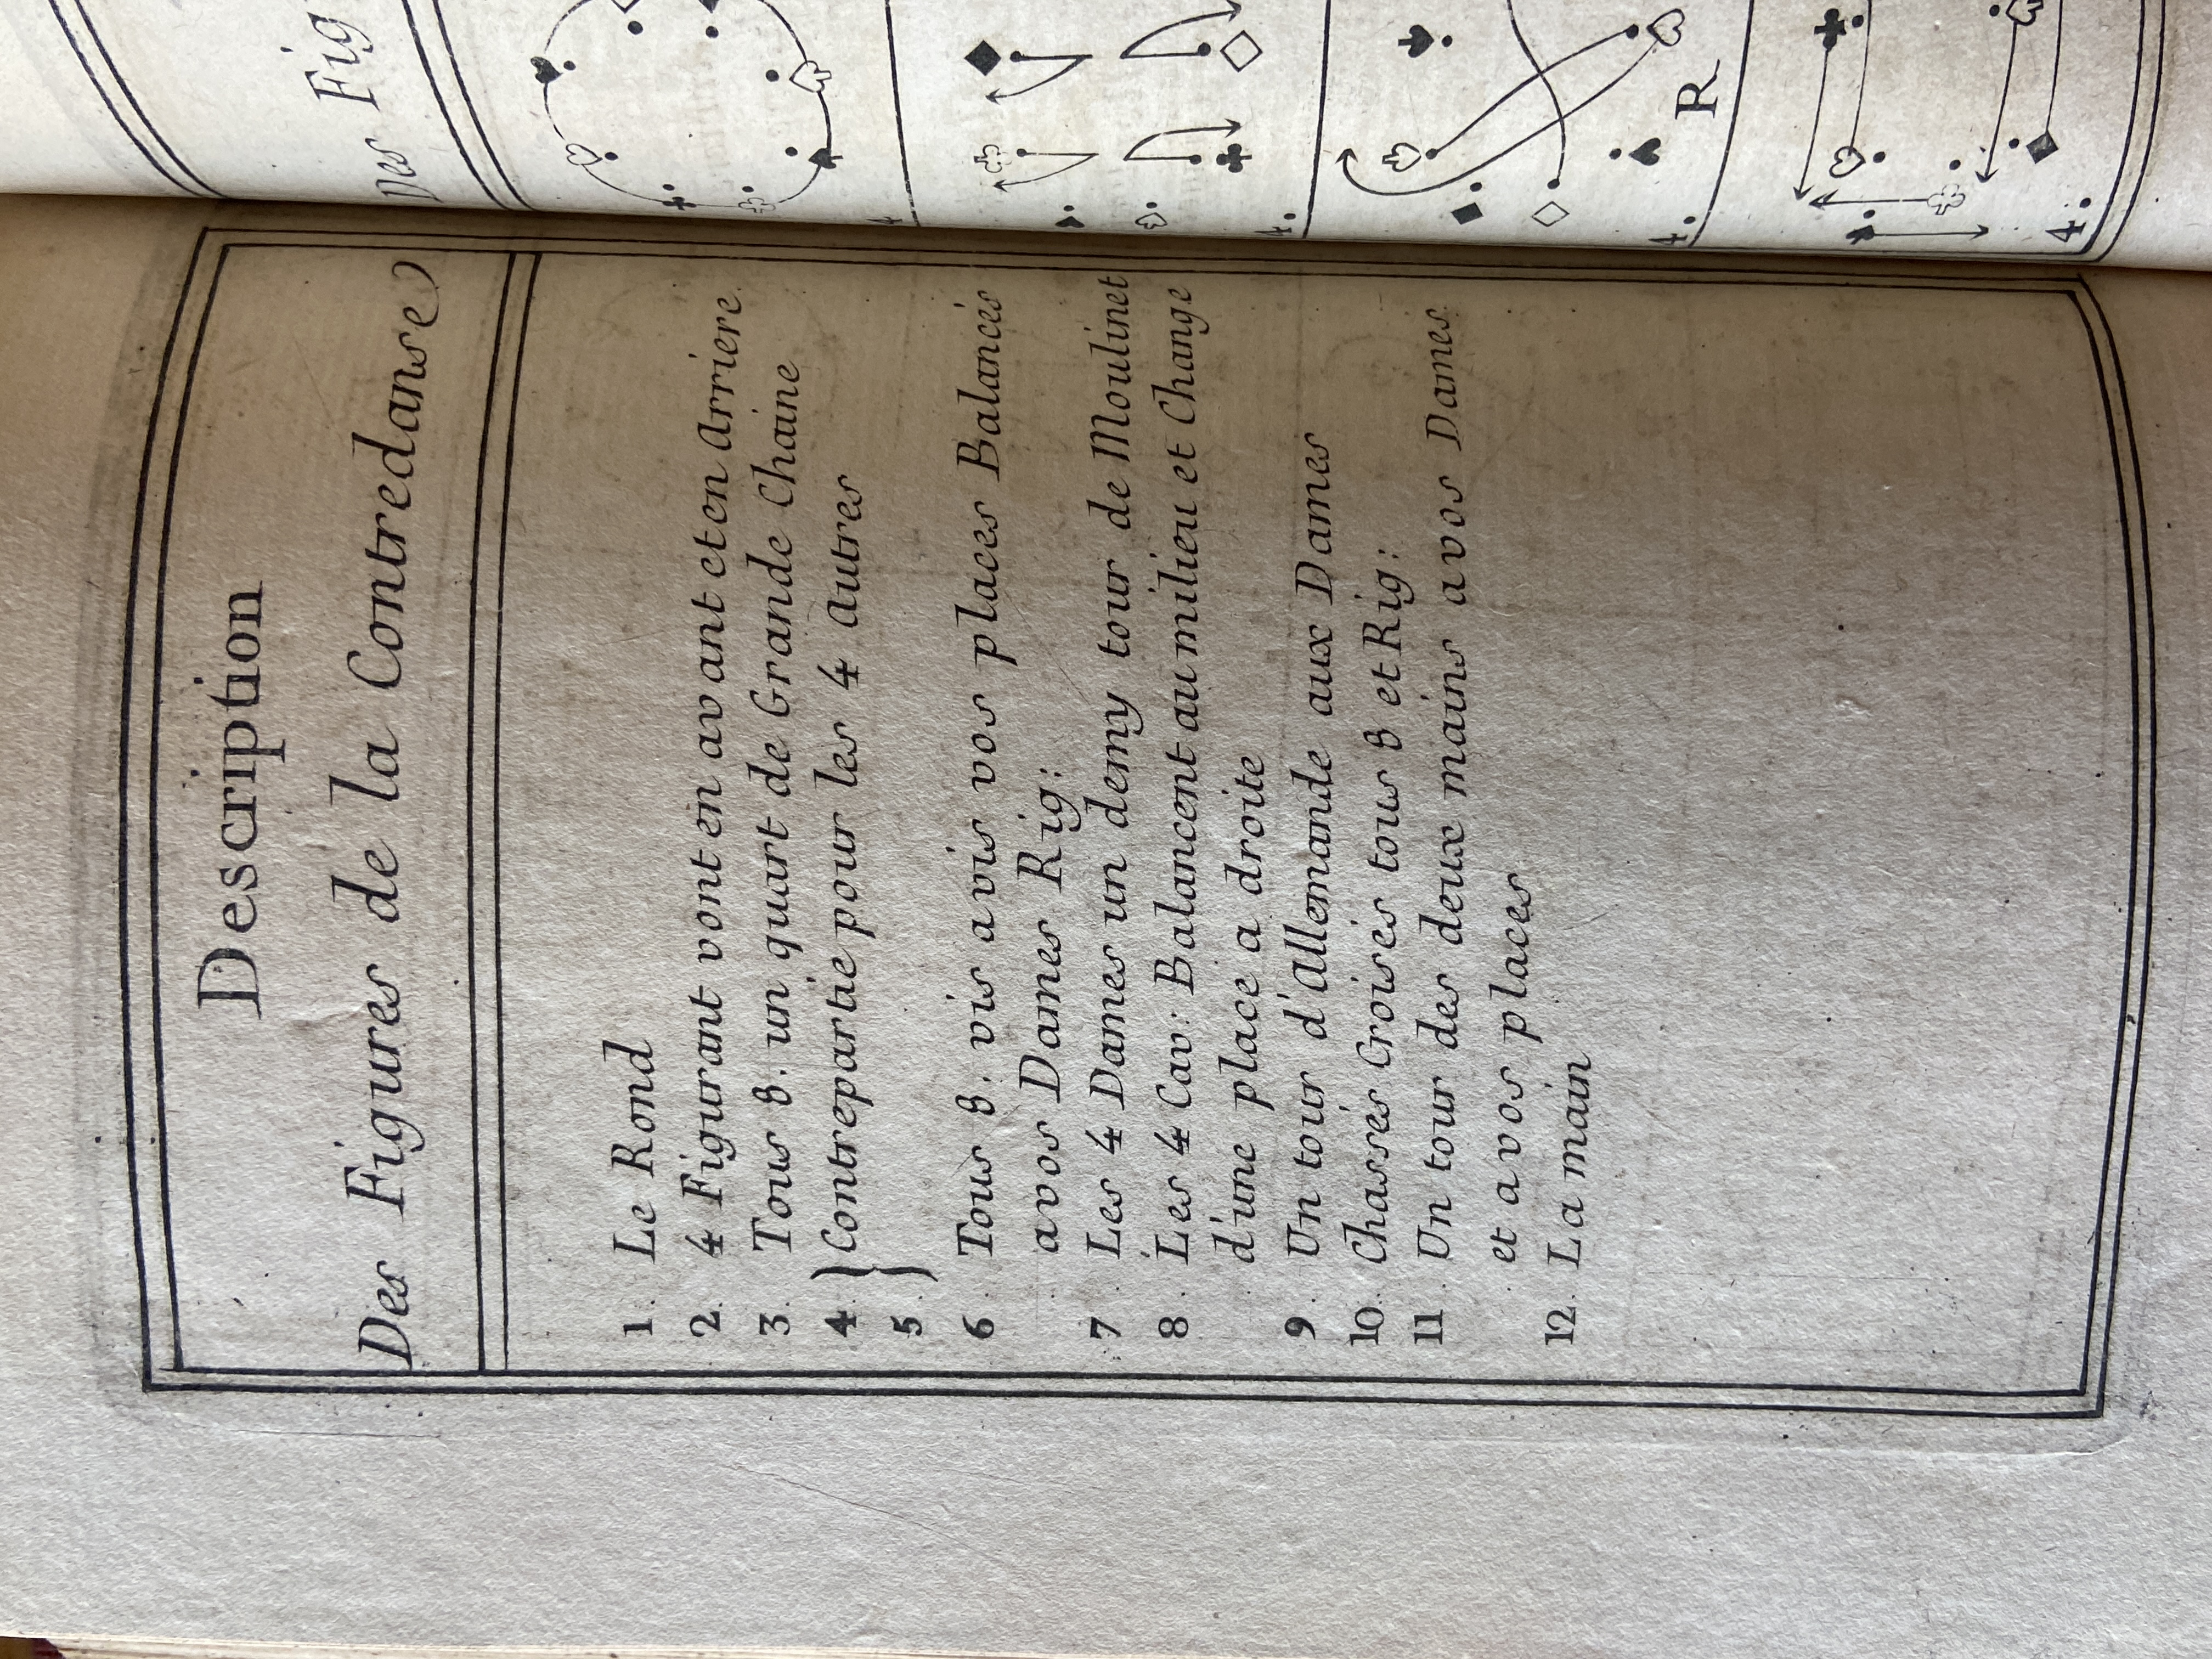 Description
Des Figures de la Contredanse
1. Le Rond
2. 4 Figurant vont en avant et en Arriere
3. Tous 8. un quart de Grande Chaine
4. Contrepartie pour les 4 Autres
5.
6. Tous 8. vis a vis vos places Balancés
a vos Dames Rig:
7. Les 4 Dames un demy tour de Moulinet
8. Les 4 Cav: Balancent au milieu et Change
d'une place a droite
9. Un tour d'Allemande aux Dames
10. Chassés Croisés tous 8 et Rig:
11. Un tour des deux mains a vos Dames
et a vos places
12. La main
Des Fig
4
4.
R
4.
4.